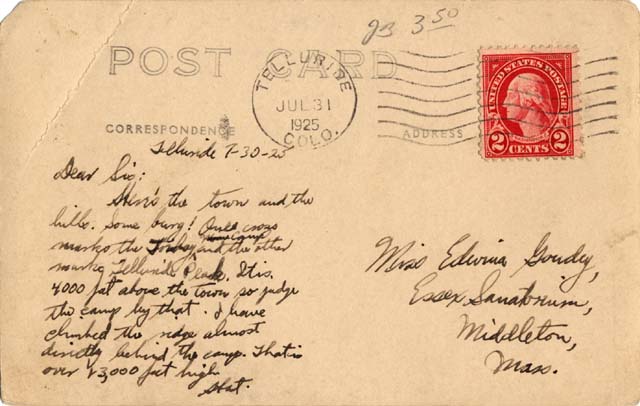 JB 3 50
POST CARD
TELLURIDE
JUL 31
1925
COLO.
UNITED STATES POSTAGE
2 CENTS 2
CORRESPONDENCE
ADDRESS
Telluride 7-30-25
Dear Sis:
Here's the town and the
hills. Some burg! One cross
marks the and the other
marks Telluride Peak. It is
4000 feet above the town so judge
the camp by that. I have
climbed the ridge almost
directly behind the camp. That is
over 13,000 feet high
Miss Edwina Goudy,
Essex Sanatorium,
Middleton,
Mass.